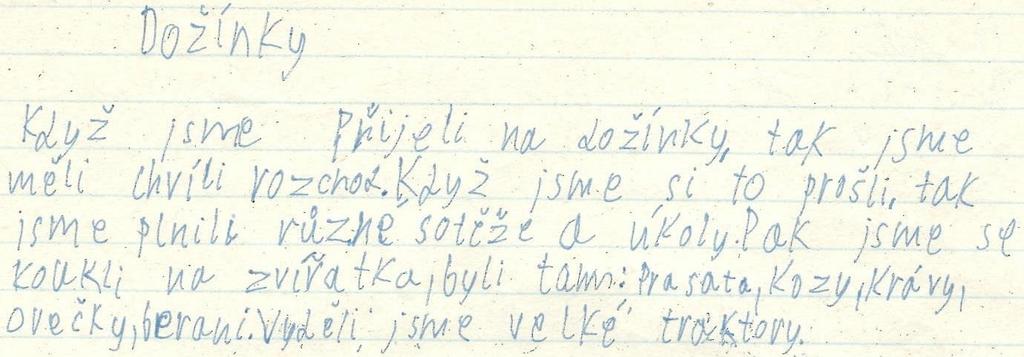 Dožínky
Když jsme Přijeli na dožínky, tak jsme
měli chvíli rozchod. Když jsme si to prošli, tak
jsme plnili různe sotěže a úkoly. Pak jsme se
koukli na zvířatka, byli tam: Prasata, kozy, krávy,
ovečky, berani. Vyděli jsme velké traktory.